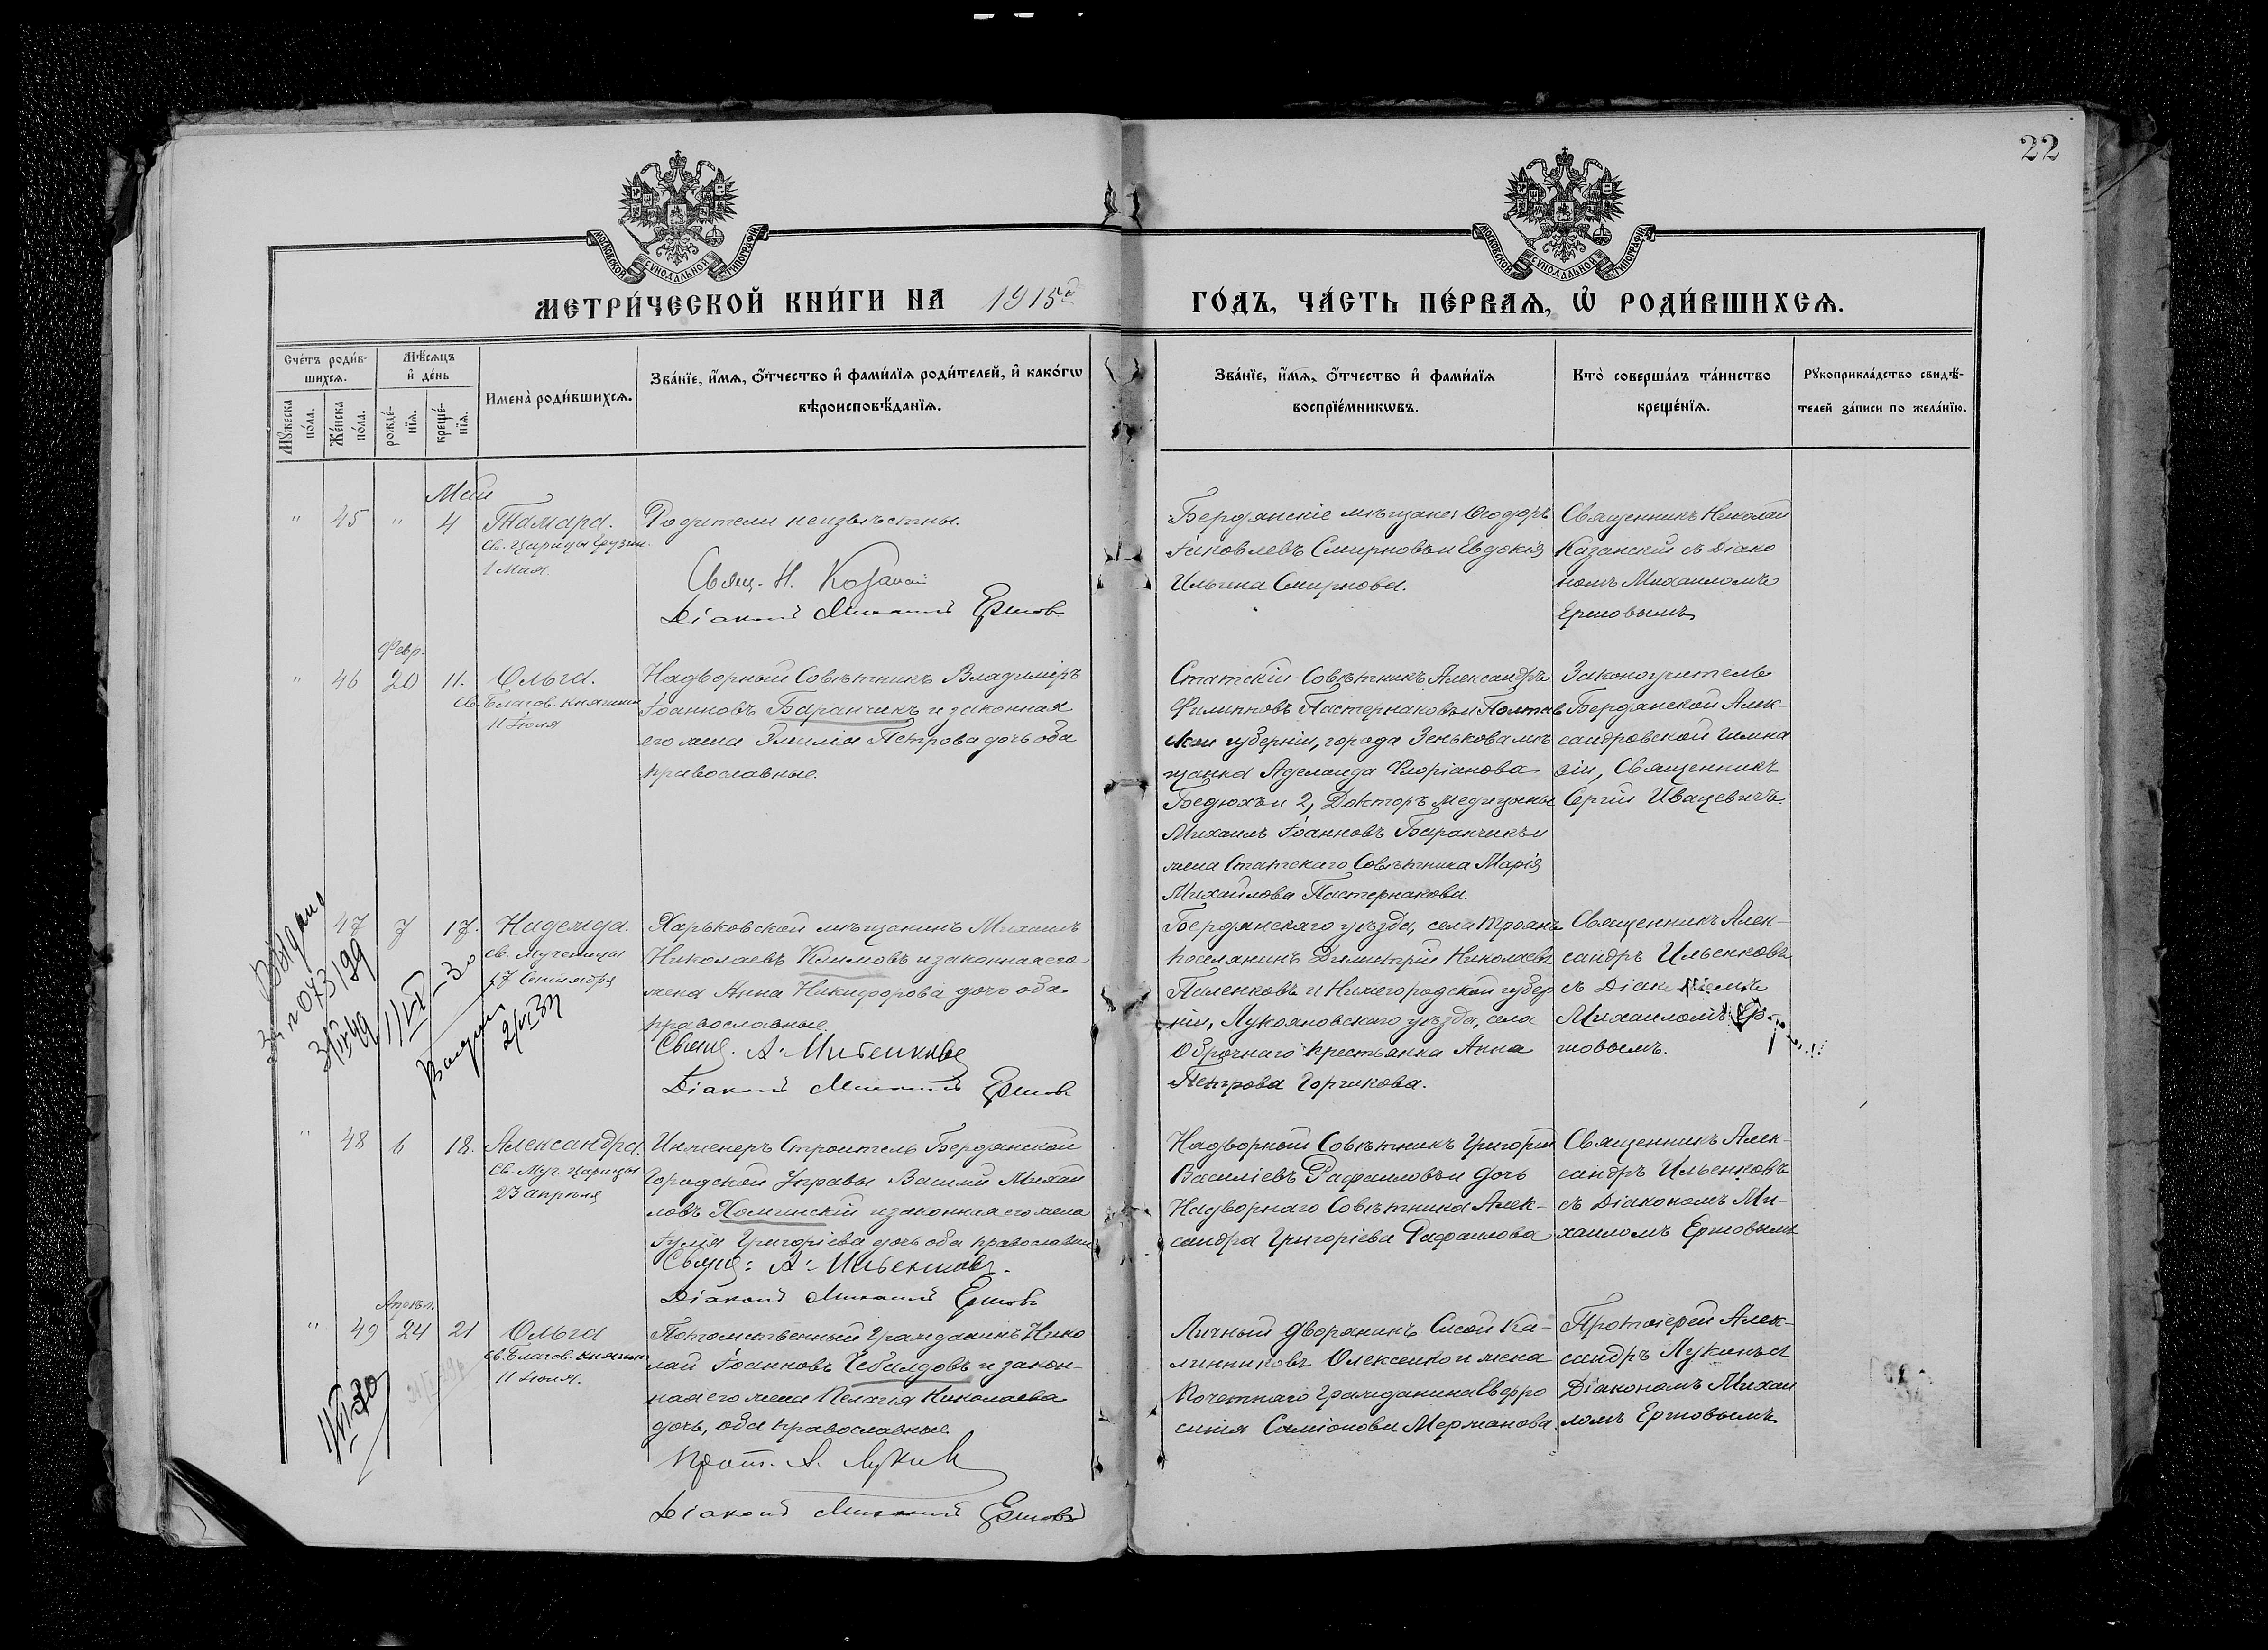 22
МОСКОВСКОЙ СУНОДАЛЬНОЙ ТИПОГРАФІИ
МОСКОВСКОЙ СУНОДАЛЬНОЙ ТИПОГРАФІИ
МЕТРИ́ЧЕСКОЙ КНИ́ГИ НА 1915й ГО́ДЪ, ЧА́СТЬ ПЕ́РВАѦ, Ѽ РОДИ́ВШИХСѦ.
Сче́тъ роди́в-
шихсѧ.
Мѣ́сѧцъ
и҆ де́нь
Мꙋ́жеска
по́ла.
Же́нска
по́ла.
рожде́-
нїѧ.
креще́-
нїѧ.
Имена̀ роди́вшихсѧ.
Зва́нїе, и҆́мѧ, ѻ҆́тчество и҆ фами́лїѧ роди́телей, и҆ како́гѡ
вѣроисповѣ́данїѧ.
Зва́нїе, и҆́мѧ, ѻ҆́тчество и҆ фами́лїѧ
воспрїе́мникѡвъ.
Кто̀ соверша́лъ та́инство
креще́нїѧ.
Рꙋкоприкла́дство свидѣ́-
телей за́писи по жела́нїю.
Май
" 45 " 4 Тамара.
Св. Царицы Грузин.
1 Мая.
Родители неизвѣстны.
Свящ. Н. Казанскій
Діаконъ Михаилъ Ершовъ
Бердянскіе мѣщане: Ѳеодоръ
Іаковлевъ Смирновъ и Евдокія
Ильина Смирнова.
Священникъ Николай
Казанскій съ Діако
номъ Михаиломъ
Ершовымъ
Февр.
" 46 20 11. Ольга.
Св. Благов. княгини
11 Іюля
Надворный Совѣтникъ Владиміръ
Іоанновъ Баранчикъ и законная
его жена Эмилія Петрова дочь оба
православные.
Статскій Совѣтникъ Александръ
Филипповъ Пастернаковъ и Полтав
ской губерніи, города Зенькова мѣ
щанка Аделаида Флоріанова
Бедюхъ и 2, Докторъ медицины
Михаилъ Іоанновъ Баранчикъ и
жена Статскаго Совѣтника Марія
Михайлова Пастернакова.
Законоучитель
Бердянской Алек-
сандровской гимна
зіи, Священникъ
Сергій Ивацевичъ.
47 7 17. Надежда.
Св. Мученицы
17 Сентября
Харьковской мѣщанинъ Михаилъ
Николаевъ Климовъ и законная его
жена Анна Никифорова дочь оба
православные.
Свящ. А. Ильенковъ
Діаконъ Михаилъ Ершовъ
Бердянскаго уѣзда, села Троянъ
поселянинъ Димитрій Николаевъ
Пиленковъ и Нижегородской губер
ніи, Лукояновскаго уѣзда, села
Оброчнаго крестьянка Анна
Петрова Горшкова.
Священникъ Алек-
сандръ Ильенковъ
съ Діак
Михаиломъ Ер-
шовымъ.
073199
3/IX 49
1/VI-30
2/VI 33
" 48 6 18. Александра.
Св. Муч. Царицы
23 апрѣля
Инженеръ Строитель Бердянской
Городской Управы Василій Михай
ловъ Хомчинскій и законная его жена
Іулія Григоріева дочь оба православные
Свящ: А. Ильенковъ.
Діаконъ Михаилъ Ершовъ
Надворный Совѣтникъ Григорій
Василіевъ Рафаиловъ и дочь
Надворнаго Совѣтника Алек-
сандра Григоріева Рафаилова
Священникъ Алек-
сандръ Ильенковъ
съ Діакономъ Ми-
хаиломъ Ершовымъ
Апрѣл.
" 49 24 21 Ольга
Св. Благов. княгини
11 Іюля.
Потомственный Гражданинъ Нико
лай Іоанновъ Чебалдовъ и закон-
ная его жена Пелагія Николаева
дочь, оба православные.
Прот. А. Лукинъ
Діаконъ Михаилъ Ершовъ
Личный дворянинъ Сисой Ка-
линниковъ Олексенко и жена
Почетнаго Гражданина Евфро
синія Симіонова Мержанова.
Протоіерей Алек-
сандръ Лукинъ съ
Діакономъ Михаи
ломъ Ершовымъ
1/VI 30